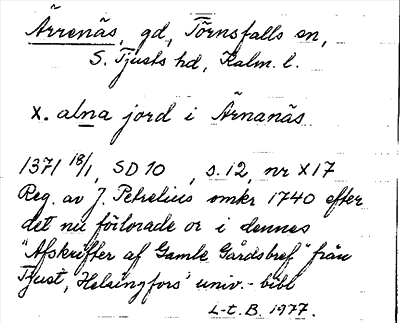 Ärrenäs, gd, Törnsfalls sn,
S. Tjusts hd, Kalm. l.
X. alna jord i Ärnanäs
1371 18/1, SD 10, s. 12, nr X 17
Reg. av J. Petrelius omkr 1740 efter
det nu förlorade or i dennes
"Afskrifter af Gamle Gårdsbref" från
Tjust, Helsingfors' univ.-bibl
L-t. B. 1977.